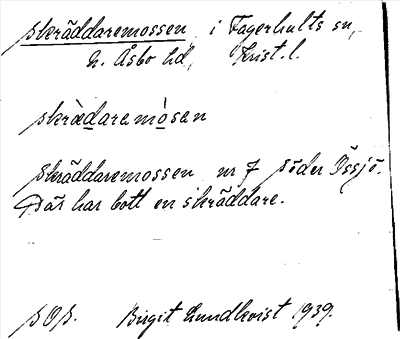 Skräddaremossen i Fagerhults sn,
N. Åsbo hd, Krist. l.
skræ̀daremósen
Skräddaremossen nr 7 Söder Össjö.
Där har bott en skräddare.
SOS. Birgit Lundkvist 1939.